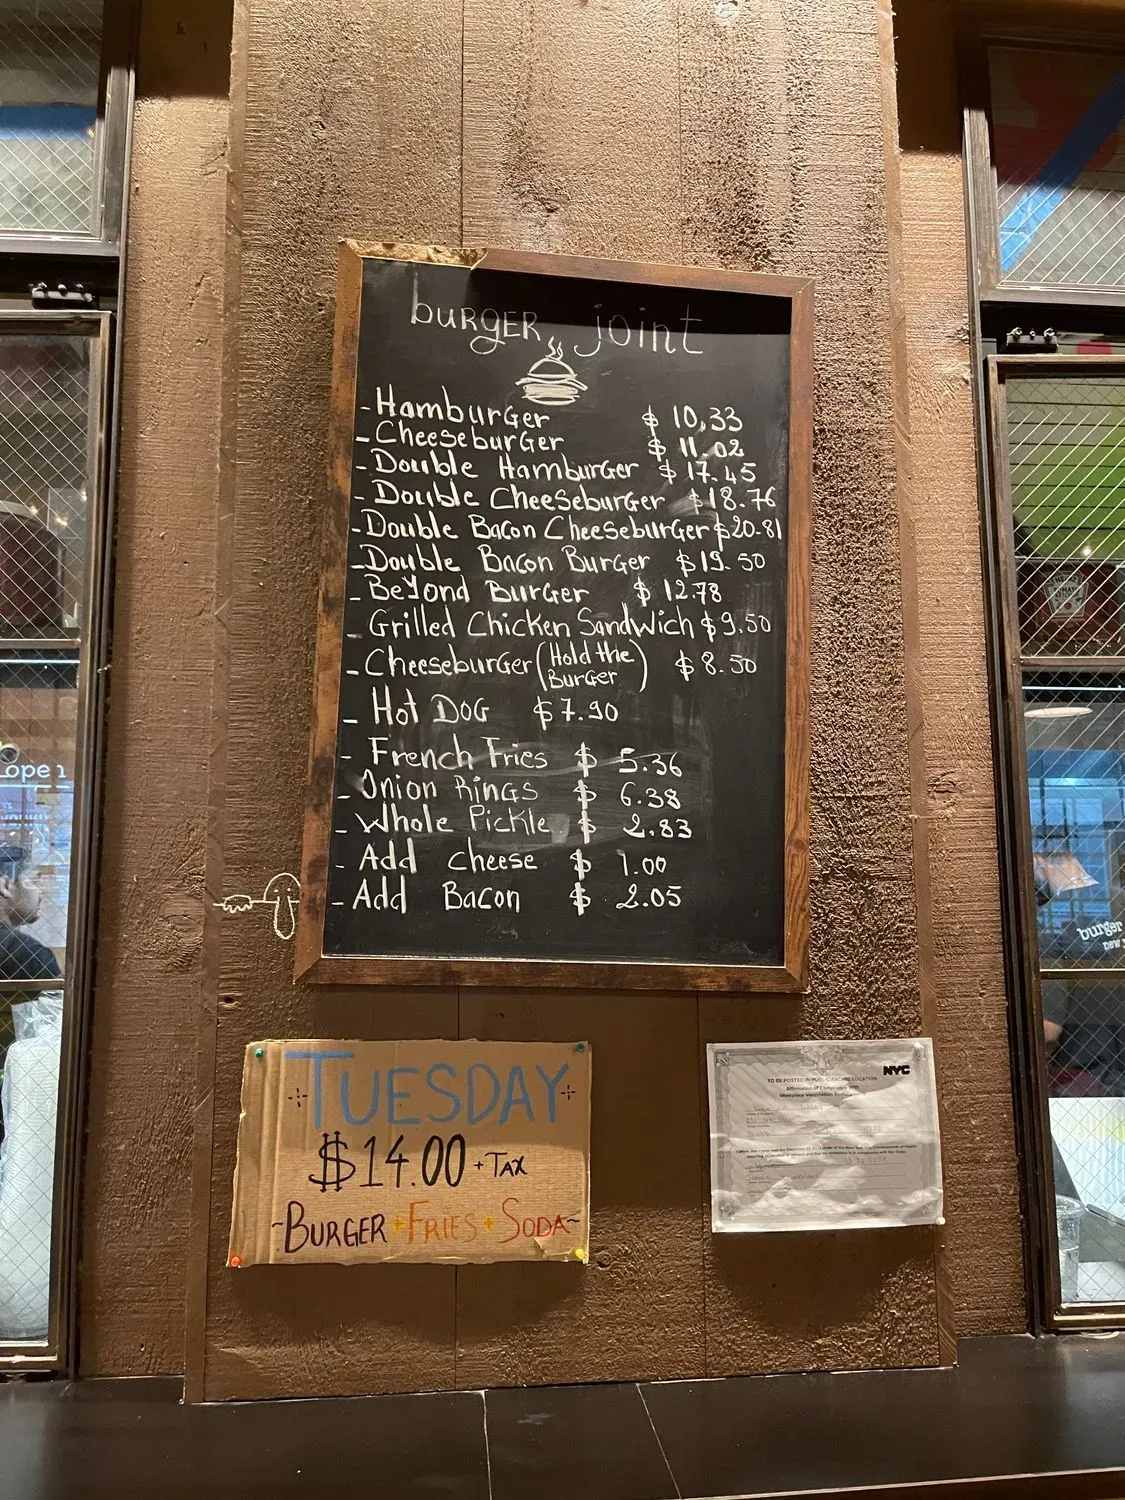 burger joint
- Hamburger $ 10,33
- Cheeseburger $ 11.02
- Double Hamburger $ 17.45
- Double Cheeseburger $18.76
- Double Bacon Cheeseburger $20.81
- Double Bacon Burger $19.50
- Beyond Burger $ 12.78
- Grilled Chicken Sandwich $9.50
- Cheeseburger (Hold the Burger) $ 8.50
- Hot Dog $7.90
- French Fries $ 5.36
- Onion Rings $ 6.38
- Whole Pickle $ 2.83
- Add cheese $ 1.00
- Add Bacon $ 2.05
TUESDAY
$14.00 + TAX
- BURGER + FRIES + SODA -
NYC
TO BE POSTED IN PUBLIC-FACING LOCATION
Affirmation of Compliance with
Workplace Vaccination Requirements
open
burger
new